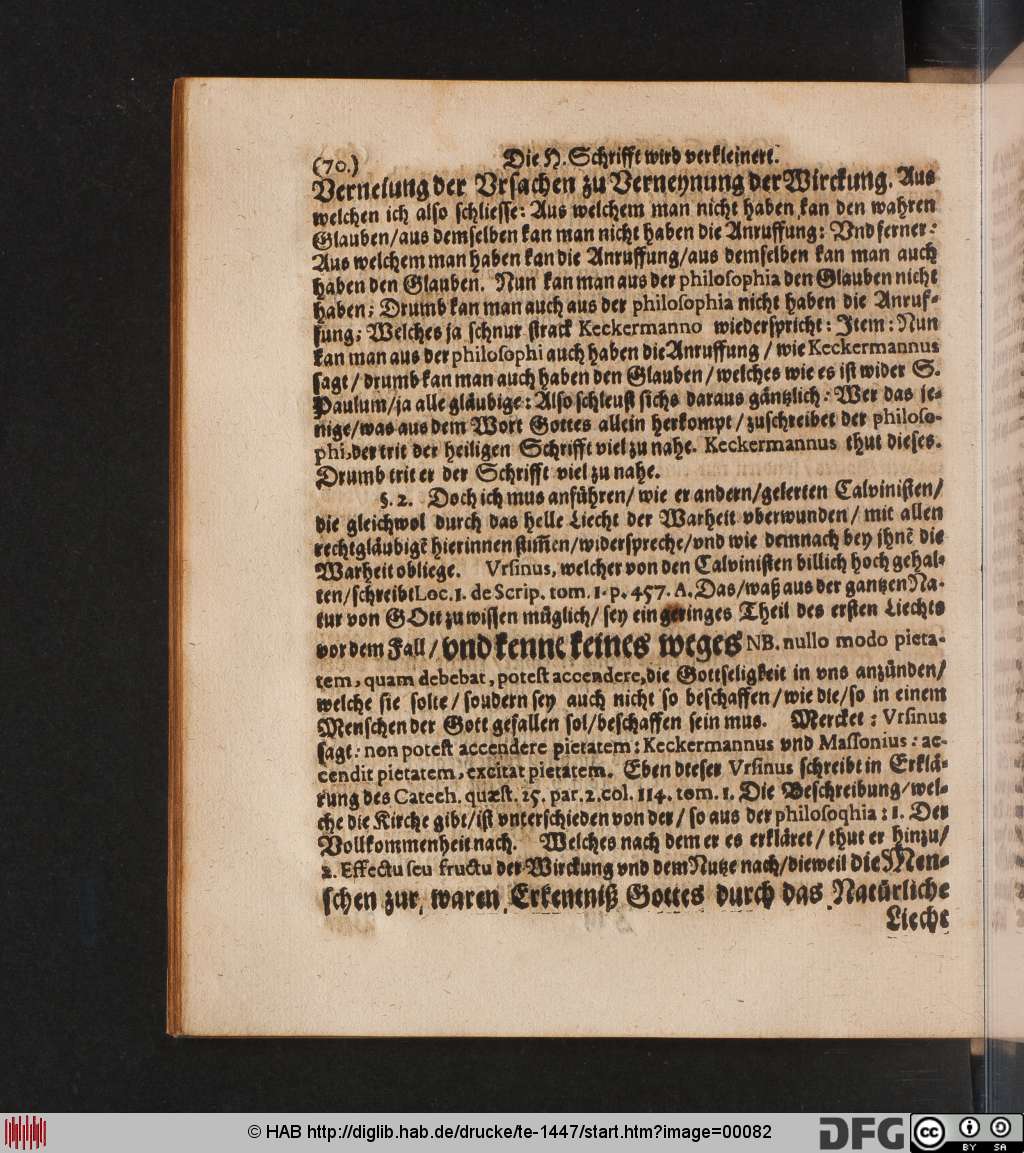 (70.) Die H. Schrifft wird verkleinert.
Verneiung der Vrsachen zu Verneynung der Wirckung. Aus
welchen ich also schliesse: Aus welchem man nicht haben kan den wahren
Glauben/aus demselben kan man nicht haben die Anruffung: Vnd ferner:
Aus welchem man haben kan die Anruffung/aus demselben kan man auch
haben den Glauben. Nun kan man aus der philosophia den Glauben nicht
haben; Drumb kan man auch aus der philosophia nicht haben die Anruf-
fung; Welches ja schnur strack Keckermanno wiederspricht: Item: Nun
kan man aus der philosophi auch haben die Anruffung / wie Keckermannus
sagt / drumb kan man auch haben den Glauben / welches wie es ist wider S.
Paulum/ja alle gläubige: Also schleust sichs daraus gäntzlich: Wer das je-
nige/was aus dem Wort Gottes allein herkompt / zuschreibet der philoso-
phi, der trit der heiligen Schrifft viel zu nahe. Keckermannus thut dieses.
Drumb trit er der Schrifft viel zu nahe.
§. 2. Doch ich mus anführen/ wie er andern/gelerten Calvinisten/
die gleichwol durch das helle Liecht der Warheit vberwunden / mit allen
rechtgläubigē hierinnen stim̄en/widerspreche/vnd wie demnach bey ihnē die
Warheit obliege. Vrsinus, welcher von den Calvinisten billich hoch gehal-
ten/schreibt Loc. 1. de Scrip. tom. 1. p. 457. A. Das/waß aus der gantzen Na-
tur von GOtt zu wissen müglich/ sey ein geringes Theil des ersten Liechts
vor dem Fall/ vnd kenne keines weges NB. nullo modo pieta-
tem, quam debebat, potest accendere, die Gottseligkeit in vns anzünden/
welche sie solte / sondern sey auch nicht so beschaffen / wie die/so in einem
Menschen der Gott gefallen sol/beschaffen sein mus. Mercket: Vrsinus
sagt: non potest accendere pietatem; Keckermannus vnd Massonius: ac-
cendit pietatem, excitat pietatem. Eben dieser Vrsinus schreibt in Erklä-
rung des Catech. quæst. 25. par. 2. col. 114. tom. 1. Die Beschreibung/wel-
che die Kirche gibt/ist vnterschieden von der / so aus der philosoqhia: 1. Der
Vollkommenheit nach. Welches nach dem er es erkläret / thut er hinzu/
2. Effectu seu fructu der Wirckung vnd dem Nutze nach/dieweil die Men-
schen zur waren Erkentniß Gottes durch das Natürliche
Liecht
© HAB http://diglib.hab.de/drucke/te-1447/start.htm?image=00082
DFG
cc BY SA